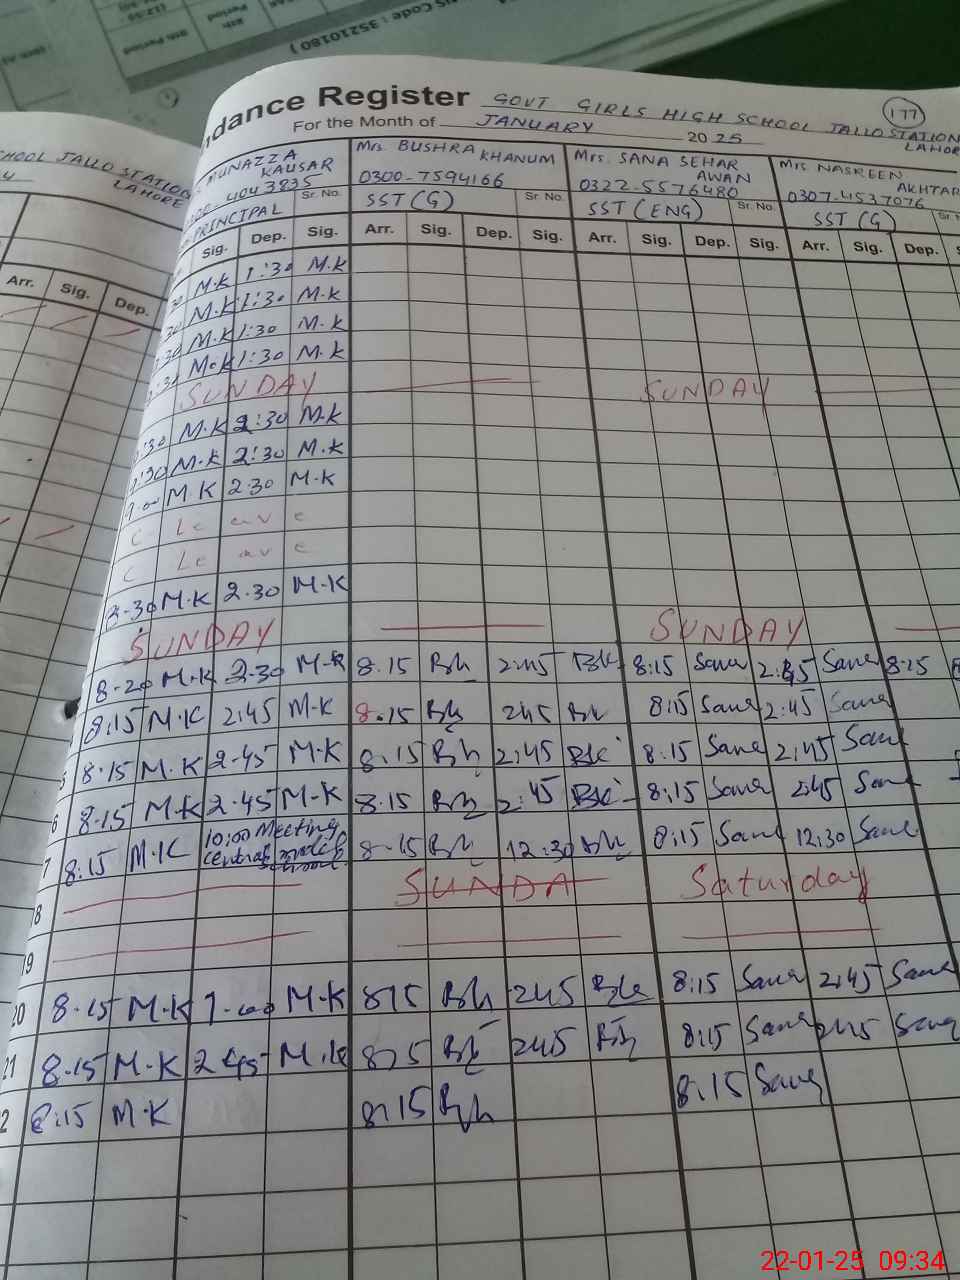 35210180 )
8th Period
ndance Register GOVT GIRLS HIGH SCHOOL JALLO STATION LAHORE
177
For the Month of JANUARY 2025
CHOOL JALLO STATION
LAHORE
MUNAZZA KAUSAR
4043835
PRINCIPAL Sr. No.
Mrs. BUSHRA KHANUM
0300-7594166
SST (G) Sr. No.
Mrs. SANA SEHAR AWAN
0322-5576480
SST (ENG) Sr. No.
Mrs. NASREEN AKHTAR
0307-4537076
SST (G)
Arr. Sig. Dep.
Sig. Dep. Sig. Arr. Sig. Dep. Sig. Arr. Sig. Dep. Sig. Arr. Sig. Dep.
M.K 1:30 M.K
M.K 1:30 M.K
M.K 1:30 M.K
M.K 1:30 M.K
SUNDAY SUNDAY
M.K 2:30 M.K
M.K 2:30 M.K
M.K 2.30 M.K
C Leave
C Leave
8-30 M.K 2.30 M.K
SUNDAY SUNDAY
8-20 M.K 2.30 M.K 8.15 Bk 2:45 Bk 8:15 Sana 2:45 Sana 8:15
8:15 M.K 2.45 M.K 8.15 Bk 245 Bk 8:15 Sana 2:45 Sana
8.15 M.K 2.45 M.K 8.15 Bk 2:45 Bk 8:15 Sana 2:45 Sana
6 8.15 M.K 2.45 M.K 8:15 Bk 2:45 Bk 8:15 Sana 2:45 Sana
7 8:15 M.K 10:00 Meeting central 8-15 Bk 12:30 Bk 8:15 Sana 12:30 Sana
8 SUNDA Saturday
19
20 8.15 M.K 1-00 M.K 815 Bk 245 Bk 8:15 Sana 2:45 Sana
21 8.15 M.K 2 45 M.K 815 Bk 245 Bk 8:15 Sana 2:45 Sana
2 8:15 M.K 8:15 Bk 8:15 Sana
22-01-25 09:34